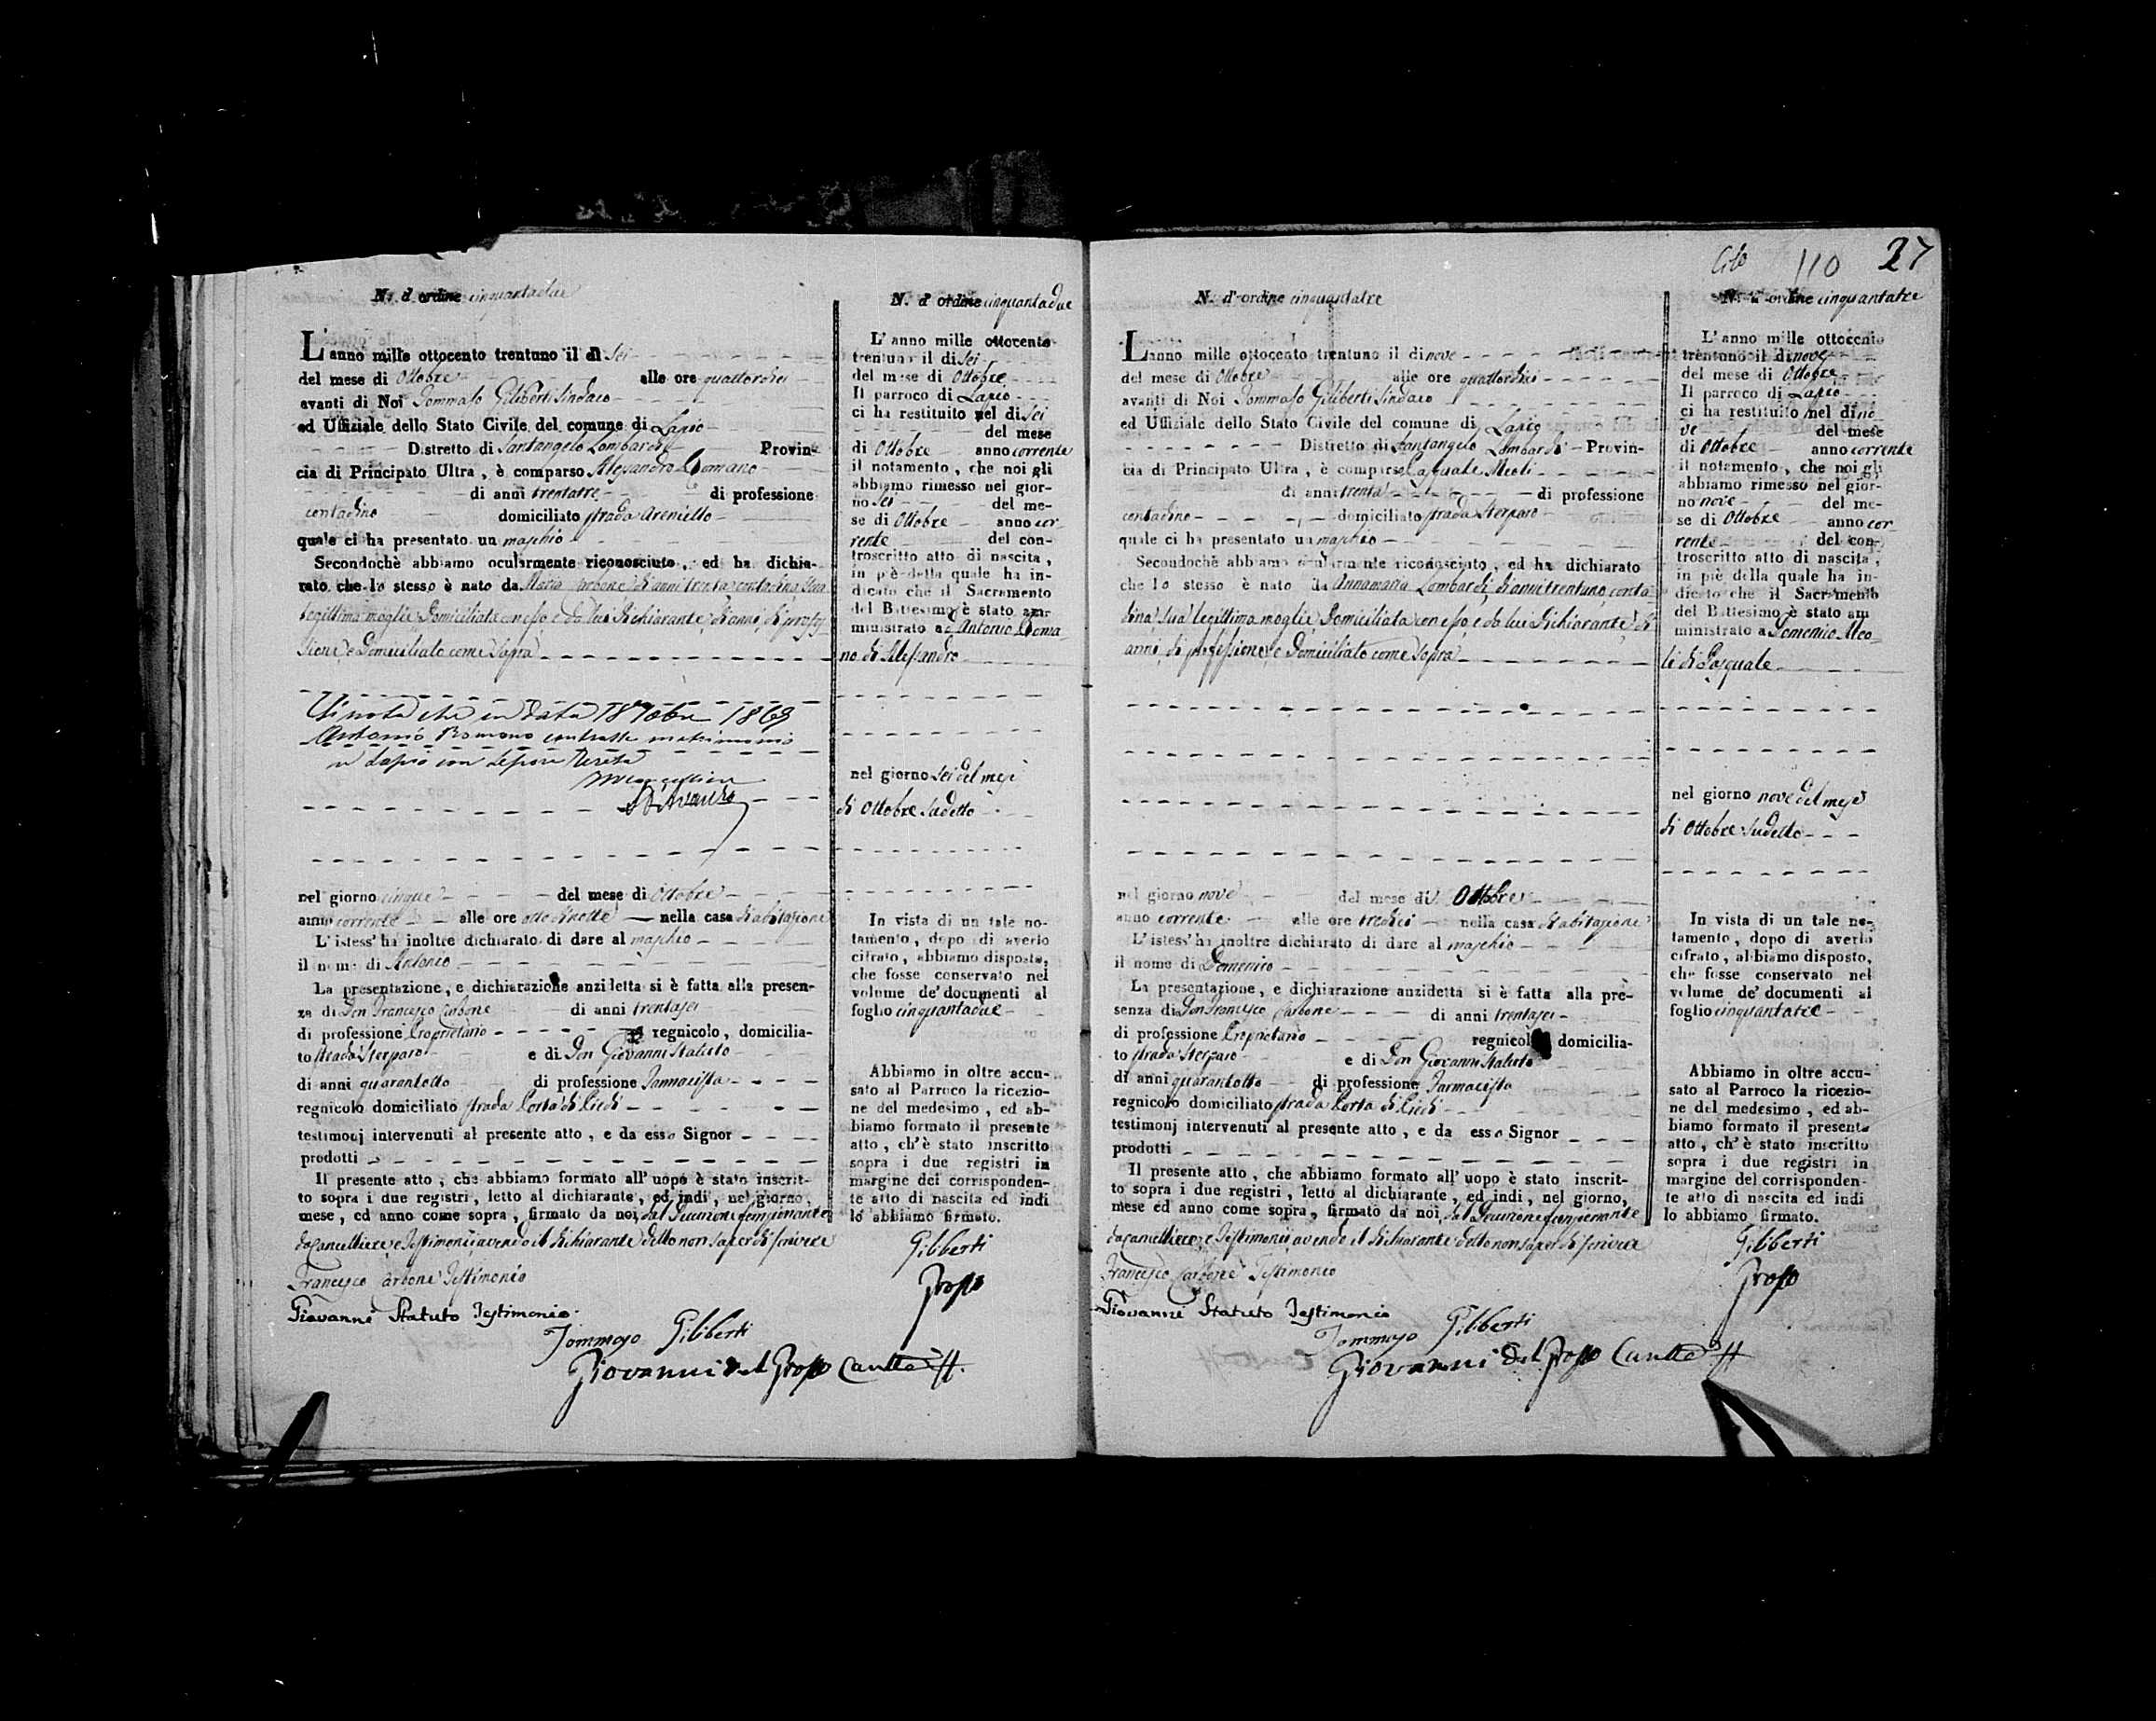 N. d'ordine cinquantadue
L'anno mille ottocento trentuno il dì Sei
del mese di Ottobre alle ore quattordici
avanti di Noi Tommaso Giliberti Sindaco
ed Uffiziale dello Stato Civile del comune di Lapio
Distretto di Santangelo Lombardi Provin-
cia di Principato Ultra, è comparso Alessandro Romano
di anni trentatre di professione
contadino domiciliato strada Areniello
quale ci ha presentato un maschio
Secondochè abbiamo ocularmente riconosciuto, ed ha dichia-
rato che lo stesso è nato da Maria Carbone di anni trenta contadina Sua
legittima moglie Domiciliata con esso e da lui Dichiarante, di anni, di profes-
sione, e Domiciliato come Sopra
Si nota che in data 18 7obre 1869
Antonio Romano contrasse matrimonio
in Lapio con Lepore Teresa
nel giorno cinque del mese di Ottobre
anno corrente alle ore otto di notte nella casa di abitazione
L'istess' ha inoltre dichiarato di dare al maschio
il nome di Antonio
La presentazione, e dichiarazione anzidetta si è fatta alla presen-
za di Don Francesco Carbone di anni trentasei
di professione Proprietario regnicolo, domicilia-
to strada Sterparo e di Don Giovanni Statuto
di anni quarantotto di professione Farmacista
regnicolo domiciliato strada Porta di Piedi
testimonj intervenuti al presente atto, e da esso Signor
prodotti
Il presente atto, che abbiamo formato all'uopo è stato inscrit-
to sopra i due registri, letto al dichiarante, ed indi, nel giorno,
mese, ed anno come sopra, firmato da noi, dal Decurione funzionante
da Cancelliere, e Testimonii, avendo il Dichiarante detto non saper di scrivere
Francesco Carbone Testimonio
Giovanni Statuto Testimonio
Tommaso Giliberti
Giovanni del Grosso Canc.
N. d'ordine cinquantadue
L'anno mille ottocento
trentuno il dì Sei
del mese di Ottobre
Il parroco di Lapio
ci ha restituito nel dì Sei
del mese
di Ottobre anno corrente
il notamento, che noi gli
abbiamo rimesso nel gior-
no Sei del me-
se di Ottobre anno cor
rente del con-
troscritto atto di nascita,
in piè della quale ha in-
dicato che il Sacramento
del Battesimo è stato am-
ministrato a Antonio Roma-
no di Alessandro
nel giorno Sei del mese
di Ottobre Sudetto
In vista di un tale no-
tamento, dopo di averlo
cifrato, abbiamo disposto,
che fosse conservato nel
volume de' documenti al
foglio cinquantadue
Abbiamo in oltre accu-
sato al Parroco la ricezio-
ne del medesimo, ed ab-
biamo formato il presente
atto, ch'è stato inscritto
sopra i due registri in
margine del corrisponden-
te atto di nascita ed indi
lo abbiamo firmato.
Giliberti
Grosso
110 27
N. d'ordine cinquantatre
L'anno mille ottocento trentuno il dì nove
del mese di Ottobre alle ore quattordici
avanti di Noi Tommaso Giliberti Sindaco
ed Uffiziale dello Stato Civile del comune di Lapio
Distretto di Santangelo Lombardi Provin-
cia di Principato Ultra, è comparso Pasquale Meoli
di anni trenta di professione
contadino domiciliato strada Sterparo
quale ci ha presentato un maschio
Secondochè abbiamo ocularmente riconosciuto, ed ha dichiarato
che lo stesso è nato da Annamaria Lombardi, di anni trentuno, conta-
dina, Sua legittima moglie Domiciliata con esso, e da lui Dichiarante di
anni, di professione, e Domiciliato come Sopra
nel giorno nove del mese di Ottobre
anno corrente alle ore tredici nella casa di abitazione
L'istess' ha inoltre dichiarato di dare al maschio
il nome di Domenico
La presentazione, e dichiarazione anzidetta si è fatta alla pre-
senza di Don Francesco Carbone di anni trentasei
di professione Proprietario regnicolo domicilia-
to strada Sterparo e di Don Giovanni Statuto
di anni quarantotto di professione Farmacista
regnicolo domiciliato strada Porta di Piedi
testimonj intervenuti al presente atto, e da esso Signor
prodotti
Il presente atto, che abbiamo formato all'uopo è stato inscrit-
to sopra i due registri, letto al dichiarante, ed indi, nel giorno,
mese ed anno come sopra, firmato da noi, dal Decurione funzionante
da Cancelliere, e Testimonii, avendo il Dichiarante detto non saper di scrivere
Francesco Carbone Testimonio
Giovanni Statuto Testimonio
Tommaso Giliberti
Giovanni del Grosso Canc.
N. d'ordine cinquantatre
L'anno mille ottocento
trentuno il dì nove
del mese di Ottobre
Il parroco di Lapio
ci ha restituito nel dì no-
ve del mese
di Ottobre anno corrente
il notamento, che noi gli
abbiamo rimesso nel gior-
no nove del me-
se di Ottobre anno cor
rente del con-
troscritto atto di nascita,
in piè della quale ha in-
dicato che il Sacramento
del Battesimo è stato am
ministrato a Domenico Meo-
li di Pasquale
nel giorno nove del mese
di Ottobre Sudetto
In vista di un tale no-
tamento, dopo di averlo
cifrato, abbiamo disposto,
che fosse conservato nel
volume de' documenti al
foglio cinquantatre
Abbiamo in oltre accu-
sato al Parroco la ricezio-
ne del medesimo, ed ab-
biamo formato il presente
atto, ch'è stato inscritto
sopra i due registri in
margine del corrisponden-
te atto di nascita ed indi
lo abbiamo firmato.
Giliberti
Grosso